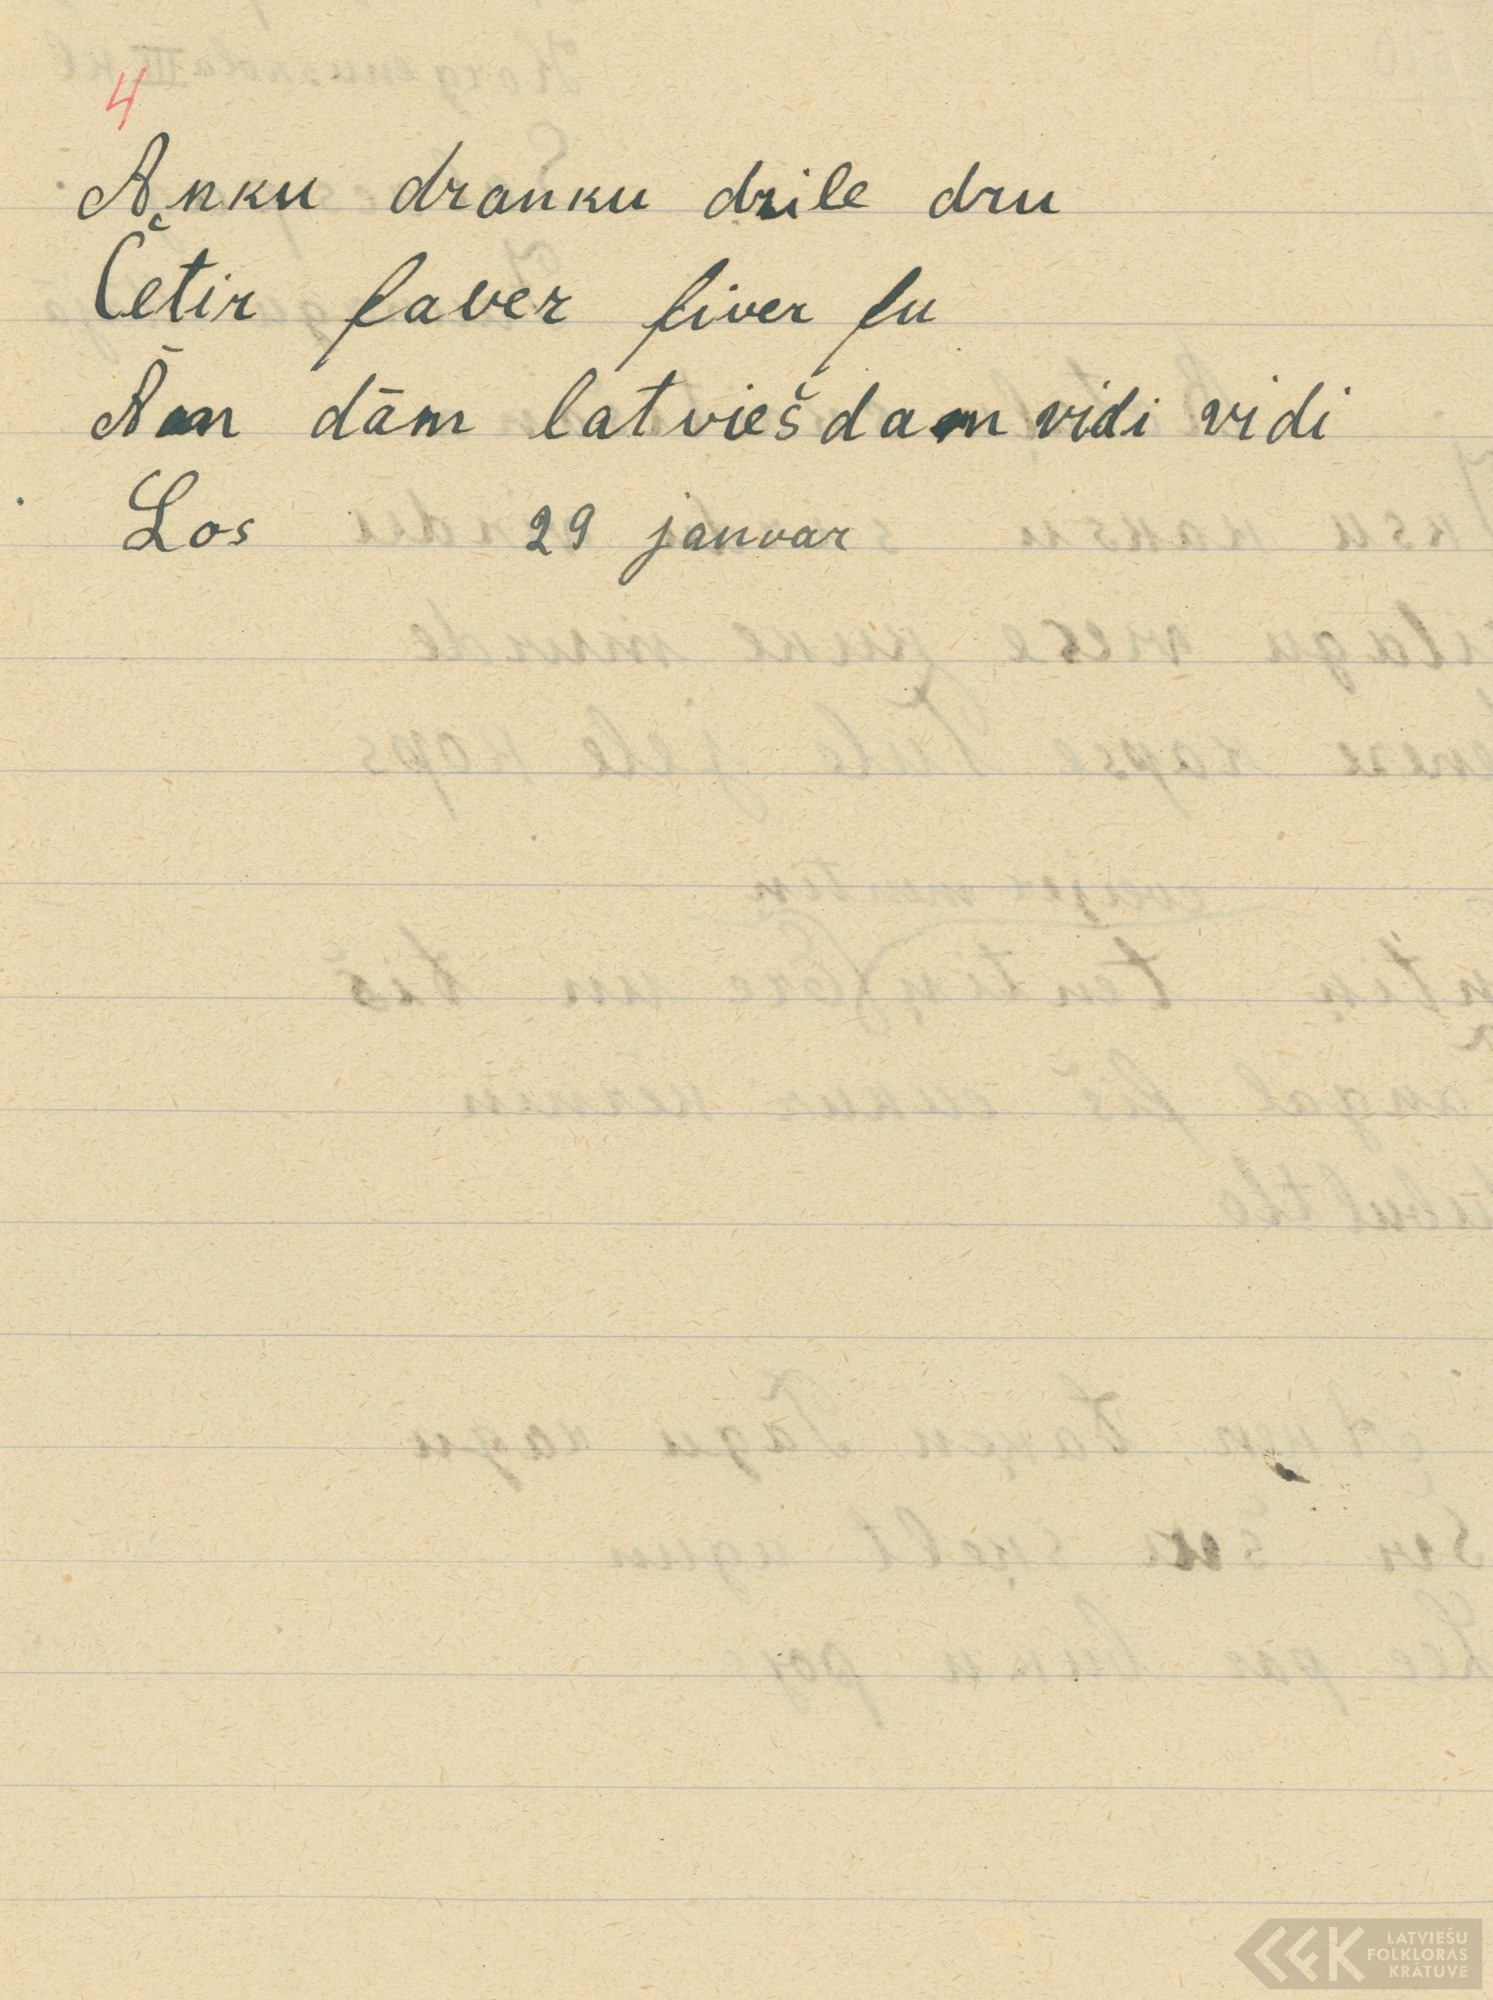 4
Anku dranku drile dru
Četir faver fiver fu
Ām dām latviešdam vidi vidi
Los 29 janvar
LATVIEŠU
FOLKLORAS
KRĀTUVE